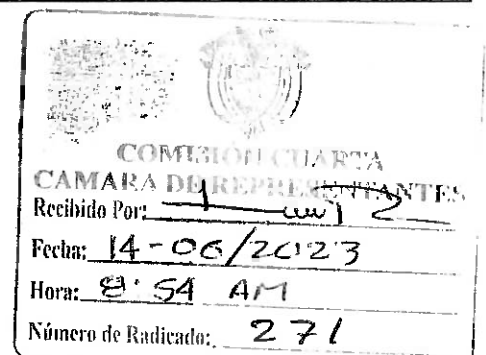 COMISIÓN CUARTA
CAMARA DE REPRESENTANTES
Recibido Por:
Fecha: 14-06/2023
Hora: 8:54 AM
Número de Radicado: 271